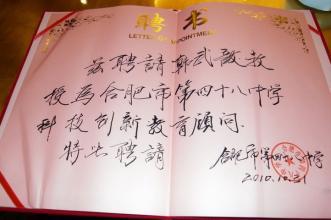 聘书
LETTER OF APPOINTMENT
兹聘請郭武敭教
授爲合肥市第四十八中学
科技创新教育顧問.
特此聘請
合肥市第四十八中学
2010.10.21